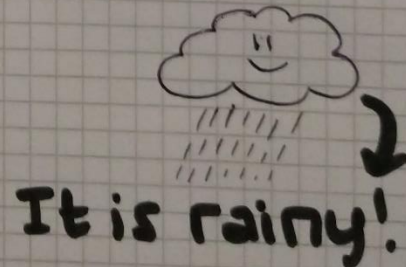 It is rainy!